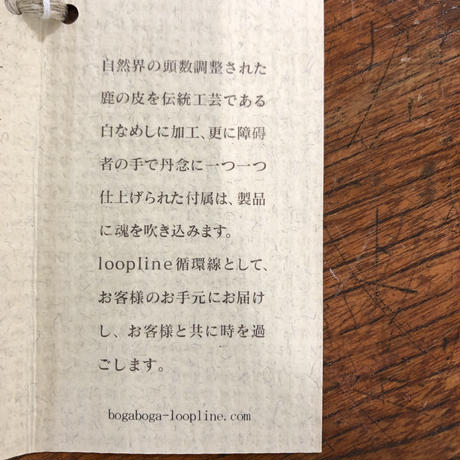 自然界の頭数調整された
鹿の皮を伝統工芸である
白なめしに加工、更に障碍
者の手で丹念に一つ一つ
仕上げられた付属は、製品
に魂を吹き込みます。
loopline循環線として、
お客様のお手元にお届け
し、お客様と共に時を過
ごします。
bogaboga-loopline.com